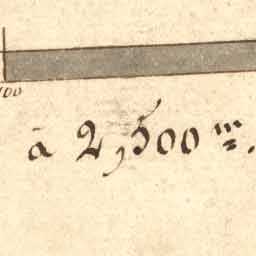 100
à 2,500 m.